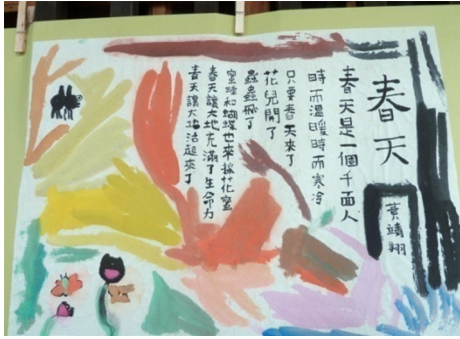 春天
黃靖翔
春天是一個千面人
時而溫暖時而寒冷
只要春天來了
花兒開了
蟲蟲飛了
蜜蜂和蝴蝶也來採花蜜
春天讓大地充滿了生命力
春天讓大地活起來了